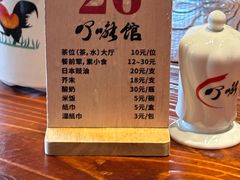 26
叮嘞馆
茶位(茶,水)大厅 10元/位
餐前荤,素小食 12-30元
日本豉油 20元/支
芥末 18元/支
酸奶 30元/瓶
米饭 5元/碗
纸巾 5元/盒
湿纸巾 3元/包